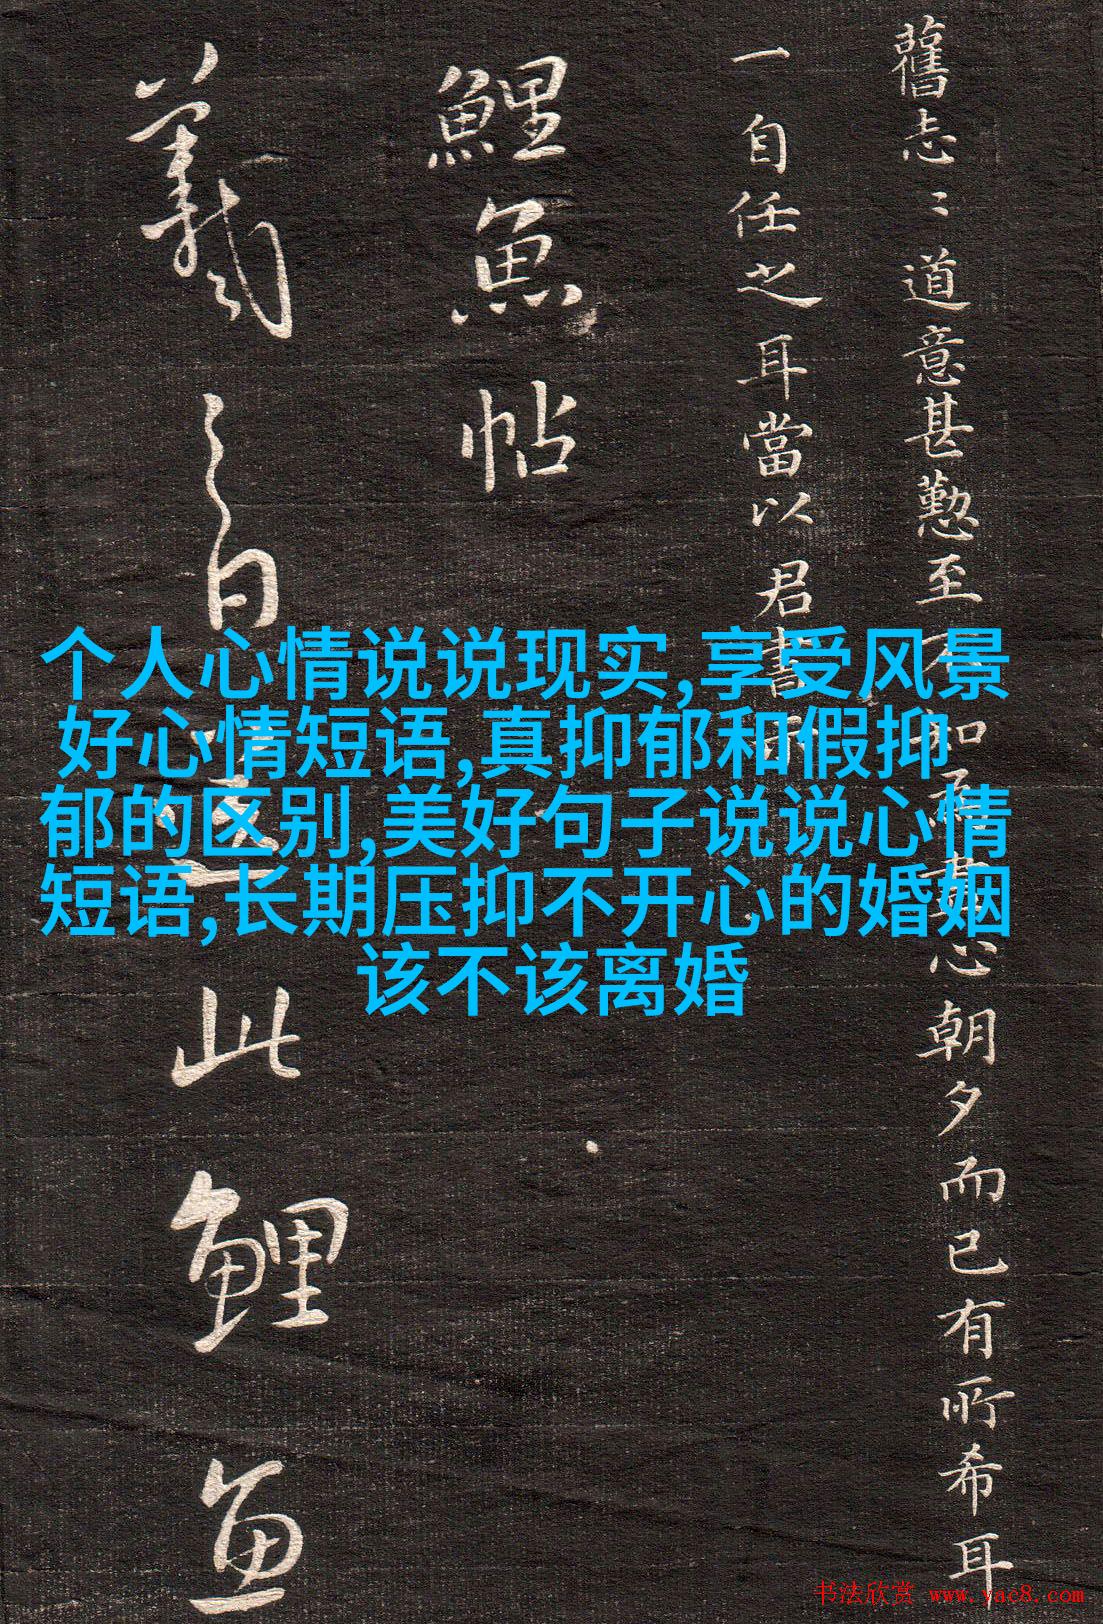 舊志〻道意甚懃至加心朝夕而已有所希耳
一自任之耳當以君書示
鯉魚帖
羲之白送此鯉魚
个人心情说说现实,享受风景
好心情短语,真抑郁和假抑
郁的区别,美好句子说说心情
短语,长期压抑不开心的婚姻
该不该离婚
书法欣赏 www.yac8.com